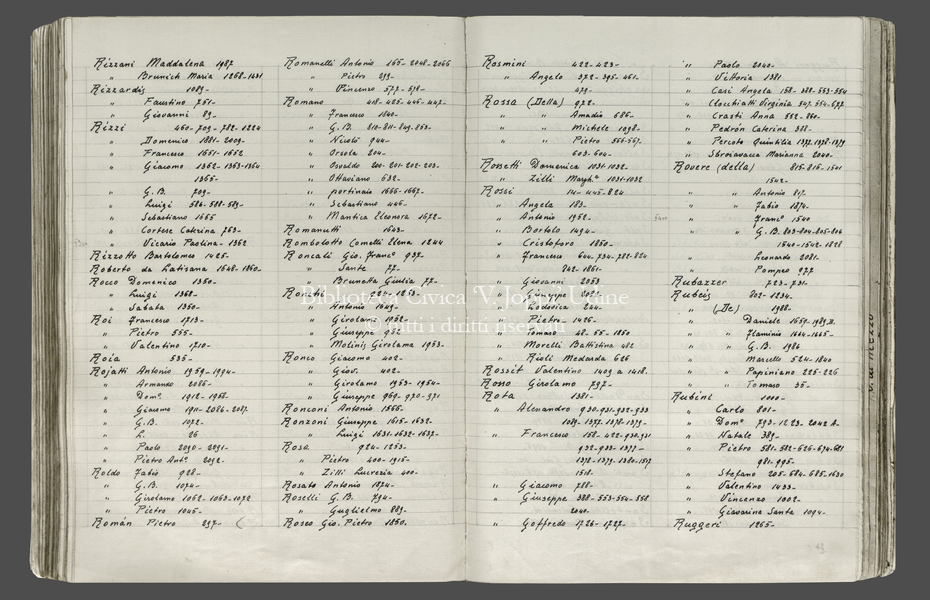 Rizzani Maddalena 1987
" Brunich Maria 1268-1431
Rizzardis 1089-
" Faustino 751-
" Giovanni 89-
Rizzi 460-709-782-1224
" Domenico 1881-2009-
" Francesco 1651-1652
" Giacomo 1362-1363-1364
1365-
" G.B. 709-
" Luigi 586-588-589-
" Sebastiano 1665
" Cortese Caterina 763-
" Vicario Paolina- 1362
Rizzotto Bartolomeo 1425-
Roberto da Latisana 1648-1860-
Rocco Domenico 1350-
" Luigi 1368-
" Sabata 1350-
Roi Francesco 1713-
" Pietro 555-
" Valentino 1710-
Roia 535-
Rojatti Antonio 1959-1994-
" Armando 2086-
" Dom° 1912-1958-
" Giacomo 1911-2086-2087-
" G.B. 1072-
" L. 26
" Paolo 2090-2091-
" Pietro Ant° 2092-
Roldo Fabio 928-
" G.B. 1074-
" Girolamo 1062-1063-1072
" Pietro 1045-
Román Pietro 297-
Romanelli Antonio 165-2048-2066
" Pietro 299-
" Vincenzo 577-578-
Romano 418-425-445-447-
" Francesco 1840-
" G.B. 810-811-849-853-
" Nicolò 944-
" Orsola 204-
" Osvaldo 200-201-202-203-
" Ottaviano 632-
" portinaio 1666-1667-
" Sebastiano 446-
" Mantica Eleonora 1672-
Romanutti 1643-
Rombolotto Comelli Elena 1244
Roncali Gio. Franc° 937-
" Sante 77-
" Brunetta Giulia 77-
" Antonio 1649-
" Girolamo 1952-
" Giuseppe 952
" Molinis Girolama 1953-
Ronco Giacomo 402-
" Giov. 402-
" Girolamo 1953-1954-
" Giuseppe 969-970-971
Ronconi Antonio 1566-
Ronzoni Giuseppe 1615-1632-
" Luigi 1631-1632-1637-
Rosa 924-1253-
" Pietro 400-1915-
" Zilli Lucrezia 400-
Rosato Antonio 1874-
Roselli G.B. 794-
" Guglielmo 889-
Roseo Gio. Pietro 1850-
Rosmini 422-423-
" Angelo 372-395-461-
479-
Rossa (Della) 972-
" " Amadio 686-
" " Michele 1098-
" " Pietro 566-567-
603-604-
Rossetti Domenica 1031-1032-
" Zilli Margh.ª 1031-1032
Rossi 14-445-824
" Angela 183-
" Antonio 1952-
" Bortolo 1494-
" Cristoforo 1850-
" Francesco 644-734-782-824
842-1861-
" Giovanni 2053
" Giuseppe 2021-
" Lodovica 244-
" Pietro- 1426-
" Tomaso 48-55-1850
" Morelli Battistina 482
" Rioli Medarda 626
Rossit Valentino 1409 a 1418-
Rosso Girolamo 797-
Rota 1381-
" Alessandro 930-931-932-933
1089-1377-1378-1379-
" Francesco 158-422-930-931
932-933-1377-
1378-1379-1380-1519
1518-
" Giacomo 788-
" Giuseppe 388-553-554-558
2040-
" Goffredo 1726-1727-
" Paolo 2040-
" Vittoria 1381
" Casi Angela 158-388-553-554
" Clocchiatti Virginia 347-554-677
" Crasti Anna 552-860-
" Pedrón Caterina 388-
" Percoto Quintilia 1377-1378-1379
" Sbroiavacca Marianna 2040-
Rovere (della) 815-816-1541
1542-
" " Antonio 817-
" " Fabio 1874-
" " Franc° 1540
" " G.B. 803-804-805-806
1540-1542-1828
" Leonardo 2081-
" Pompeo 977
Rubazzer 723-731-
Rubeis 802-1234-
" (De) 1988-
" " Daniele 1657-1989 II-
" " Flaminio 1664-1665-
" " G.B. 1986
" Marcello 524-1840
" " Papiniano 225-226
" " Tomaso 35-
Rubini 1000-
" Carlo 801-
" Dom° 793-1223-2042 A-
" Natale 389-
" Pietro 581-582-626-674-681
981-995-
" Stefano 205-684-685-1630
" Valentino 1433-
" Vincenzo 1002-
" Giavarina Santa 1094-
Ruggeri 1265-
43
Biblioteca Civica "V. Joppi" Udine
© tutti i diritti riservati